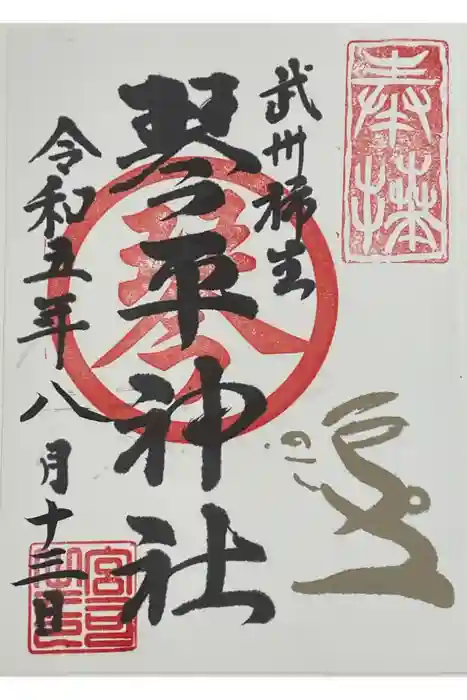 奉拝
武州柿生
琴平神社
令和五年八月十三日